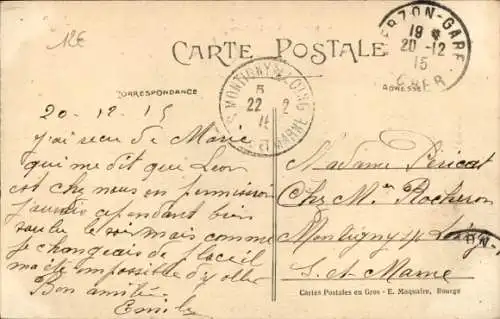 12€
CARTE POSTALE
CORRESPONDANCE
ADRESSE
VIERZON-GARE
19
20-12
15
CHER
MONTIGNY-S-LOING
5
22 2
15
S. ET MARNE
20-12-15
j'ai recu de Marie
qui me dit que Leon
est chez nous en permission
j'aurais cependant bien
voulu le voir mais comme
je changeais de
m'a été impossible d'y aller
Bon amitié
Emile
Madame Péricat
Chez Mr Rocheron
Montigny s/ Loing
S. et Marne
Cartes Postales en Gros - E. Maquaire, Bourge